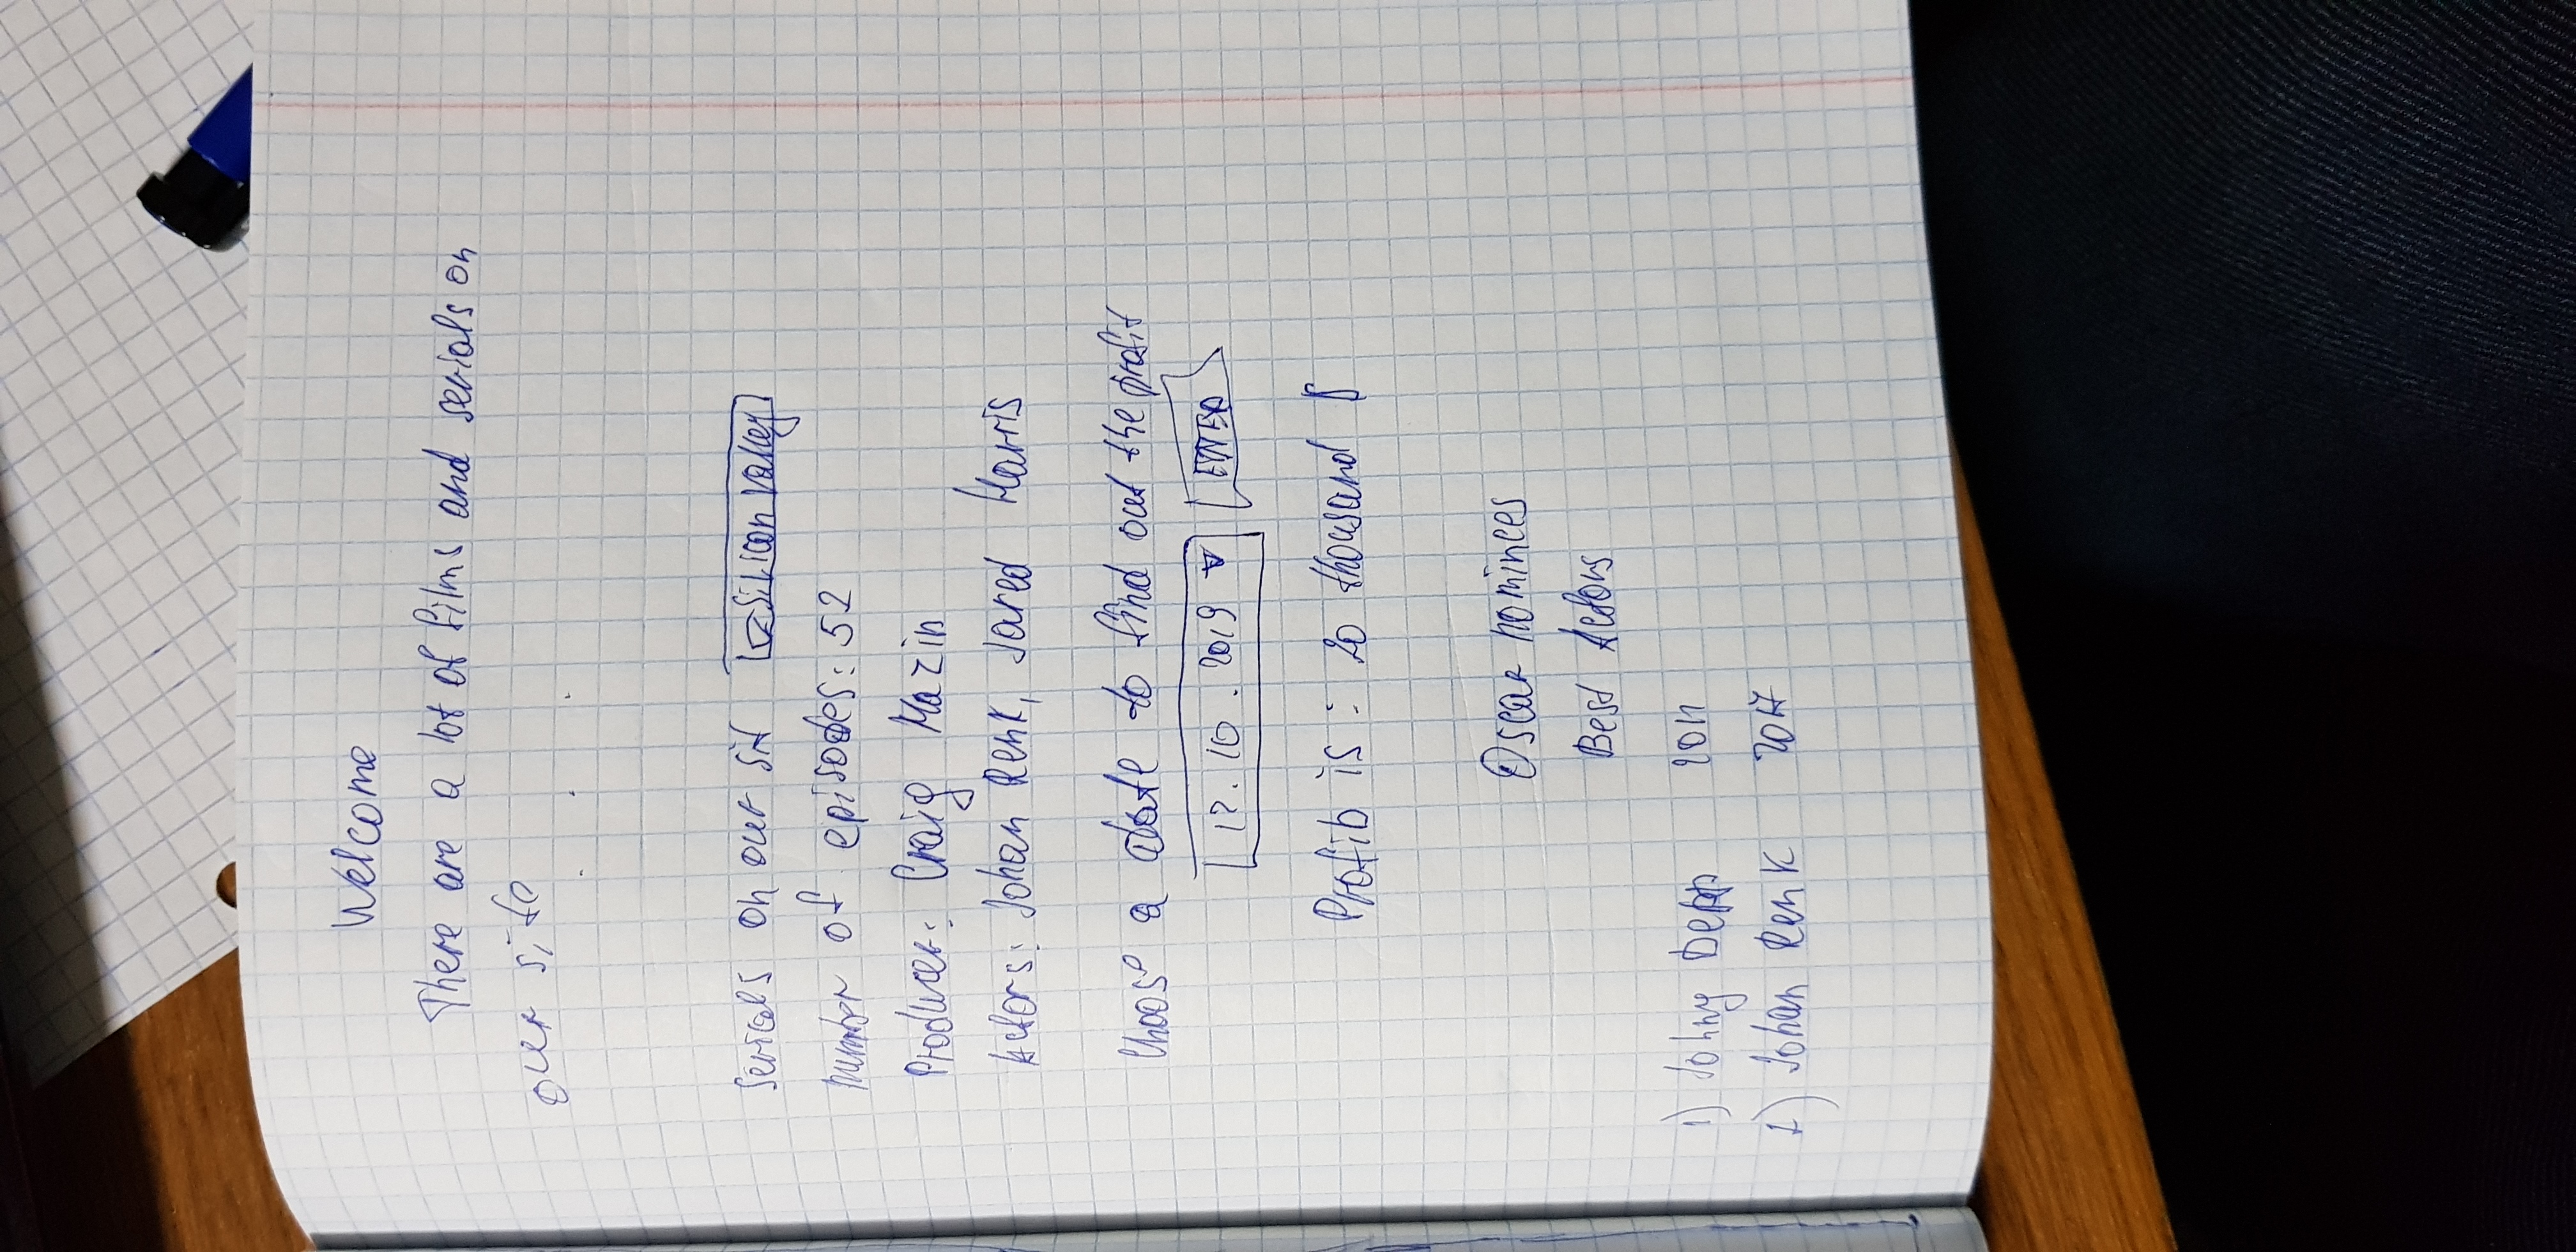 Welcome
There are a lot of films and serials on
our site
Serials on our sit Silicon Valley
number of episodes: 52
Producer: Craig Mazin
Actors: Johan Renk, Jared Harris
Choose a date to find out the profit
12.10.2019 ENTER
Profit is: 20 thousand $
Oscar nominees
Best Actors
1) Johny Depp 2011
2) Johan Renk 2017